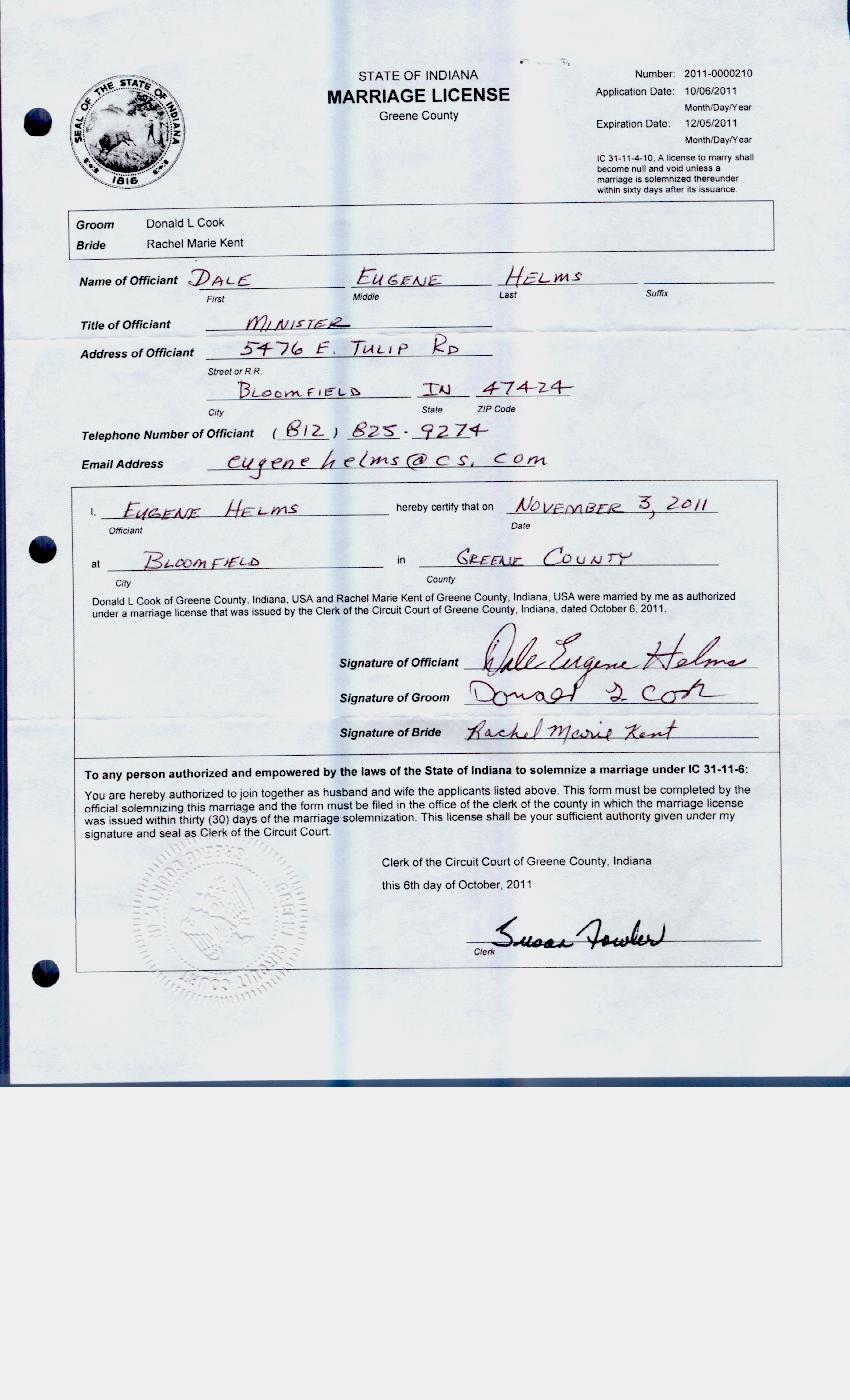 STATE OF INDIANA
MARRIAGE LICENSE
Greene County
Number: 2011-0000210
Application Date: 10/06/2011
Month/Day/Year
Expiration Date: 12/05/2011
Month/Day/Year
IC 31-11-4-10, A license to marry shall
become null and void unless a
marriage is solemnized thereunder
within sixty days after its issuance.
SEAL OF THE STATE OF INDIANA
1816
Groom Donald L Cook
Bride Rachel Marie Kent
Name of Officiant DALE EUGENE HELMS
First Middle Last Suffix
Title of Officiant MINISTER
Address of Officiant 5476 E. TULIP RD
Street or R.R.
BLOOMFIELD IN 47424
City State ZIP Code
Telephone Number of Officiant (812) 825-9274
Email Address eugenehelms@cs.com
I, EUGENE HELMS hereby certify that on NOVEMBER 3, 2011
Officiant Date
at BLOOMFIELD in GREENE COUNTY
City County
Donald L Cook of Greene County, Indiana, USA and Rachel Marie Kent of Greene County, Indiana, USA were married by me as authorized
under a marriage license that was issued by the Clerk of the Circuit Court of Greene County, Indiana, dated October 6, 2011.
Signature of Officiant Dale Eugene Helms
Signature of Groom Donald L Cook
Signature of Bride Rachel Marie Kent
To any person authorized and empowered by the laws of the State of Indiana to solemnize a marriage under IC 31-11-6:
You are hereby authorized to join together as husband and wife the applicants listed above. This form must be completed by the
official solemnizing this marriage and the form must be filed in the office of the clerk of the county in which the marriage license
was issued within thirty (30) days of the marriage solemnization. This license shall be your sufficient authority given under my
signature and seal as Clerk of the Circuit Court.
Clerk of the Circuit Court of Greene County, Indiana
this 6th day of October, 2011
Susan Fowler
Clerk